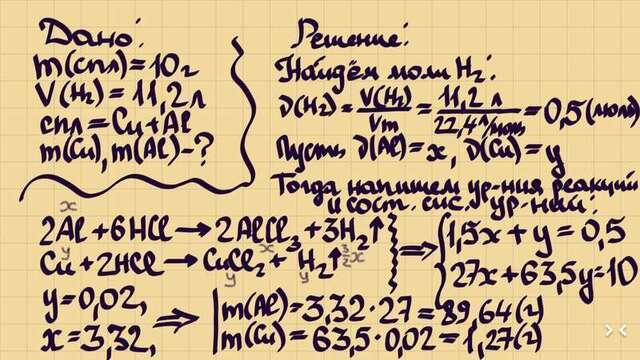 Дано:
m(спл)=10г
V(H₂)=11,2л
спл=Cu+Al
m(Cu), m(Al)-?
Решение:
Найдём моли H₂:
ν(H₂)=V(H₂)/Vm=11,2 л/22,4 л/моль=0,5(моль)
Пусть ν(Al)=x, ν(Cu)=y
Тогда напишем ур-ния реакций
и сост. сис. ур-ний:
x
2Al+6HCl→2AlCl₃+3H₂↑
y x 3/2x
Cu+2HCl→CuCl₂+H₂↑
y y
⇒ { 1,5x+y=0,5
27x+63,5y=10
y=0,02,
x=3,32,
⇒ | m(Al)=3,32·27=89,64(г)
m(Cu)=63,5·0,02=1,27(г)